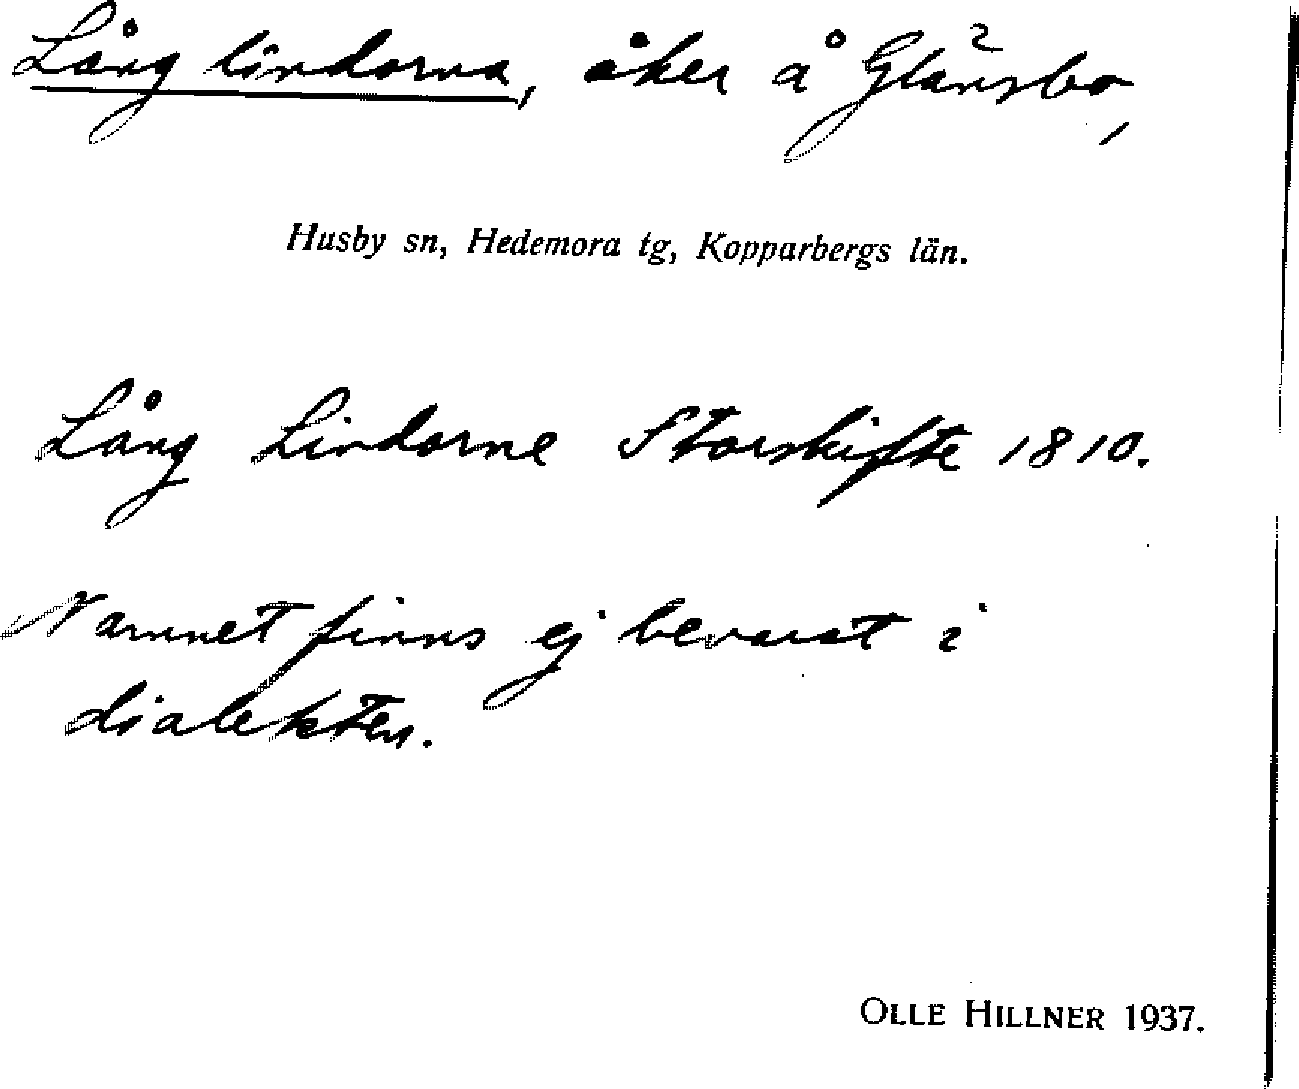 Långlindorna, åker å Glänsbo,
Husby sn, Hedemora tg, Kopparbergs län.
Lång Lindorne Storskifte 1810.
Namnet finns ej bevarat i
dialekten.
OLLE HILLNER 1937.